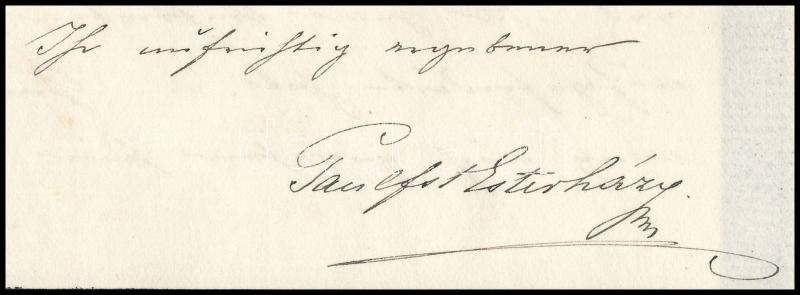 Ihr aufrichtig ergebener
Paul Fst Esterházy.